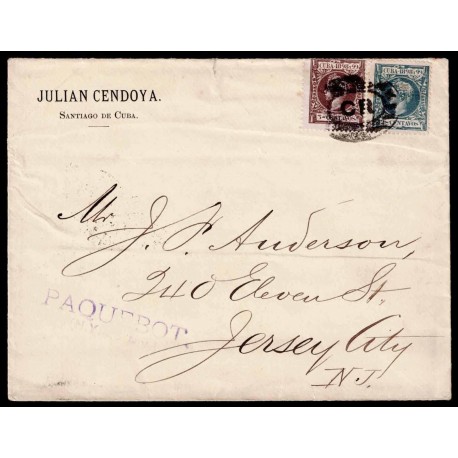 JULIAN CENDOYA.
SANTIAGO DE CUBA.
CUBA 1898 Y 99
CUBA 1898 Y 99
CENTAVOS
Mr. J. P. Anderson,
240 Eleven St.
Jersey City
N.J.
PAQUEBOT.